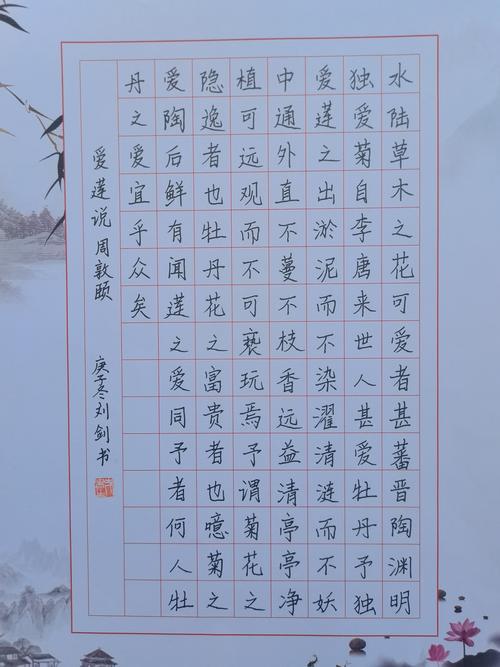 水陆草木之花可爱者甚蕃晋陶渊明
独爱菊自李唐来世人甚爱牡丹予独
爱莲之出淤泥而不染濯清涟而不妖
中通外直不蔓不枝香远益清亭亭净
植可远观而不可亵玩焉予谓菊花之
隐逸者也牡丹花之富贵者也噫菊之
爱陶后鲜有闻莲之爱同予者何人牡
丹之爱宜乎众矣
爱莲说 周敦颐 庚子冬刘剑书